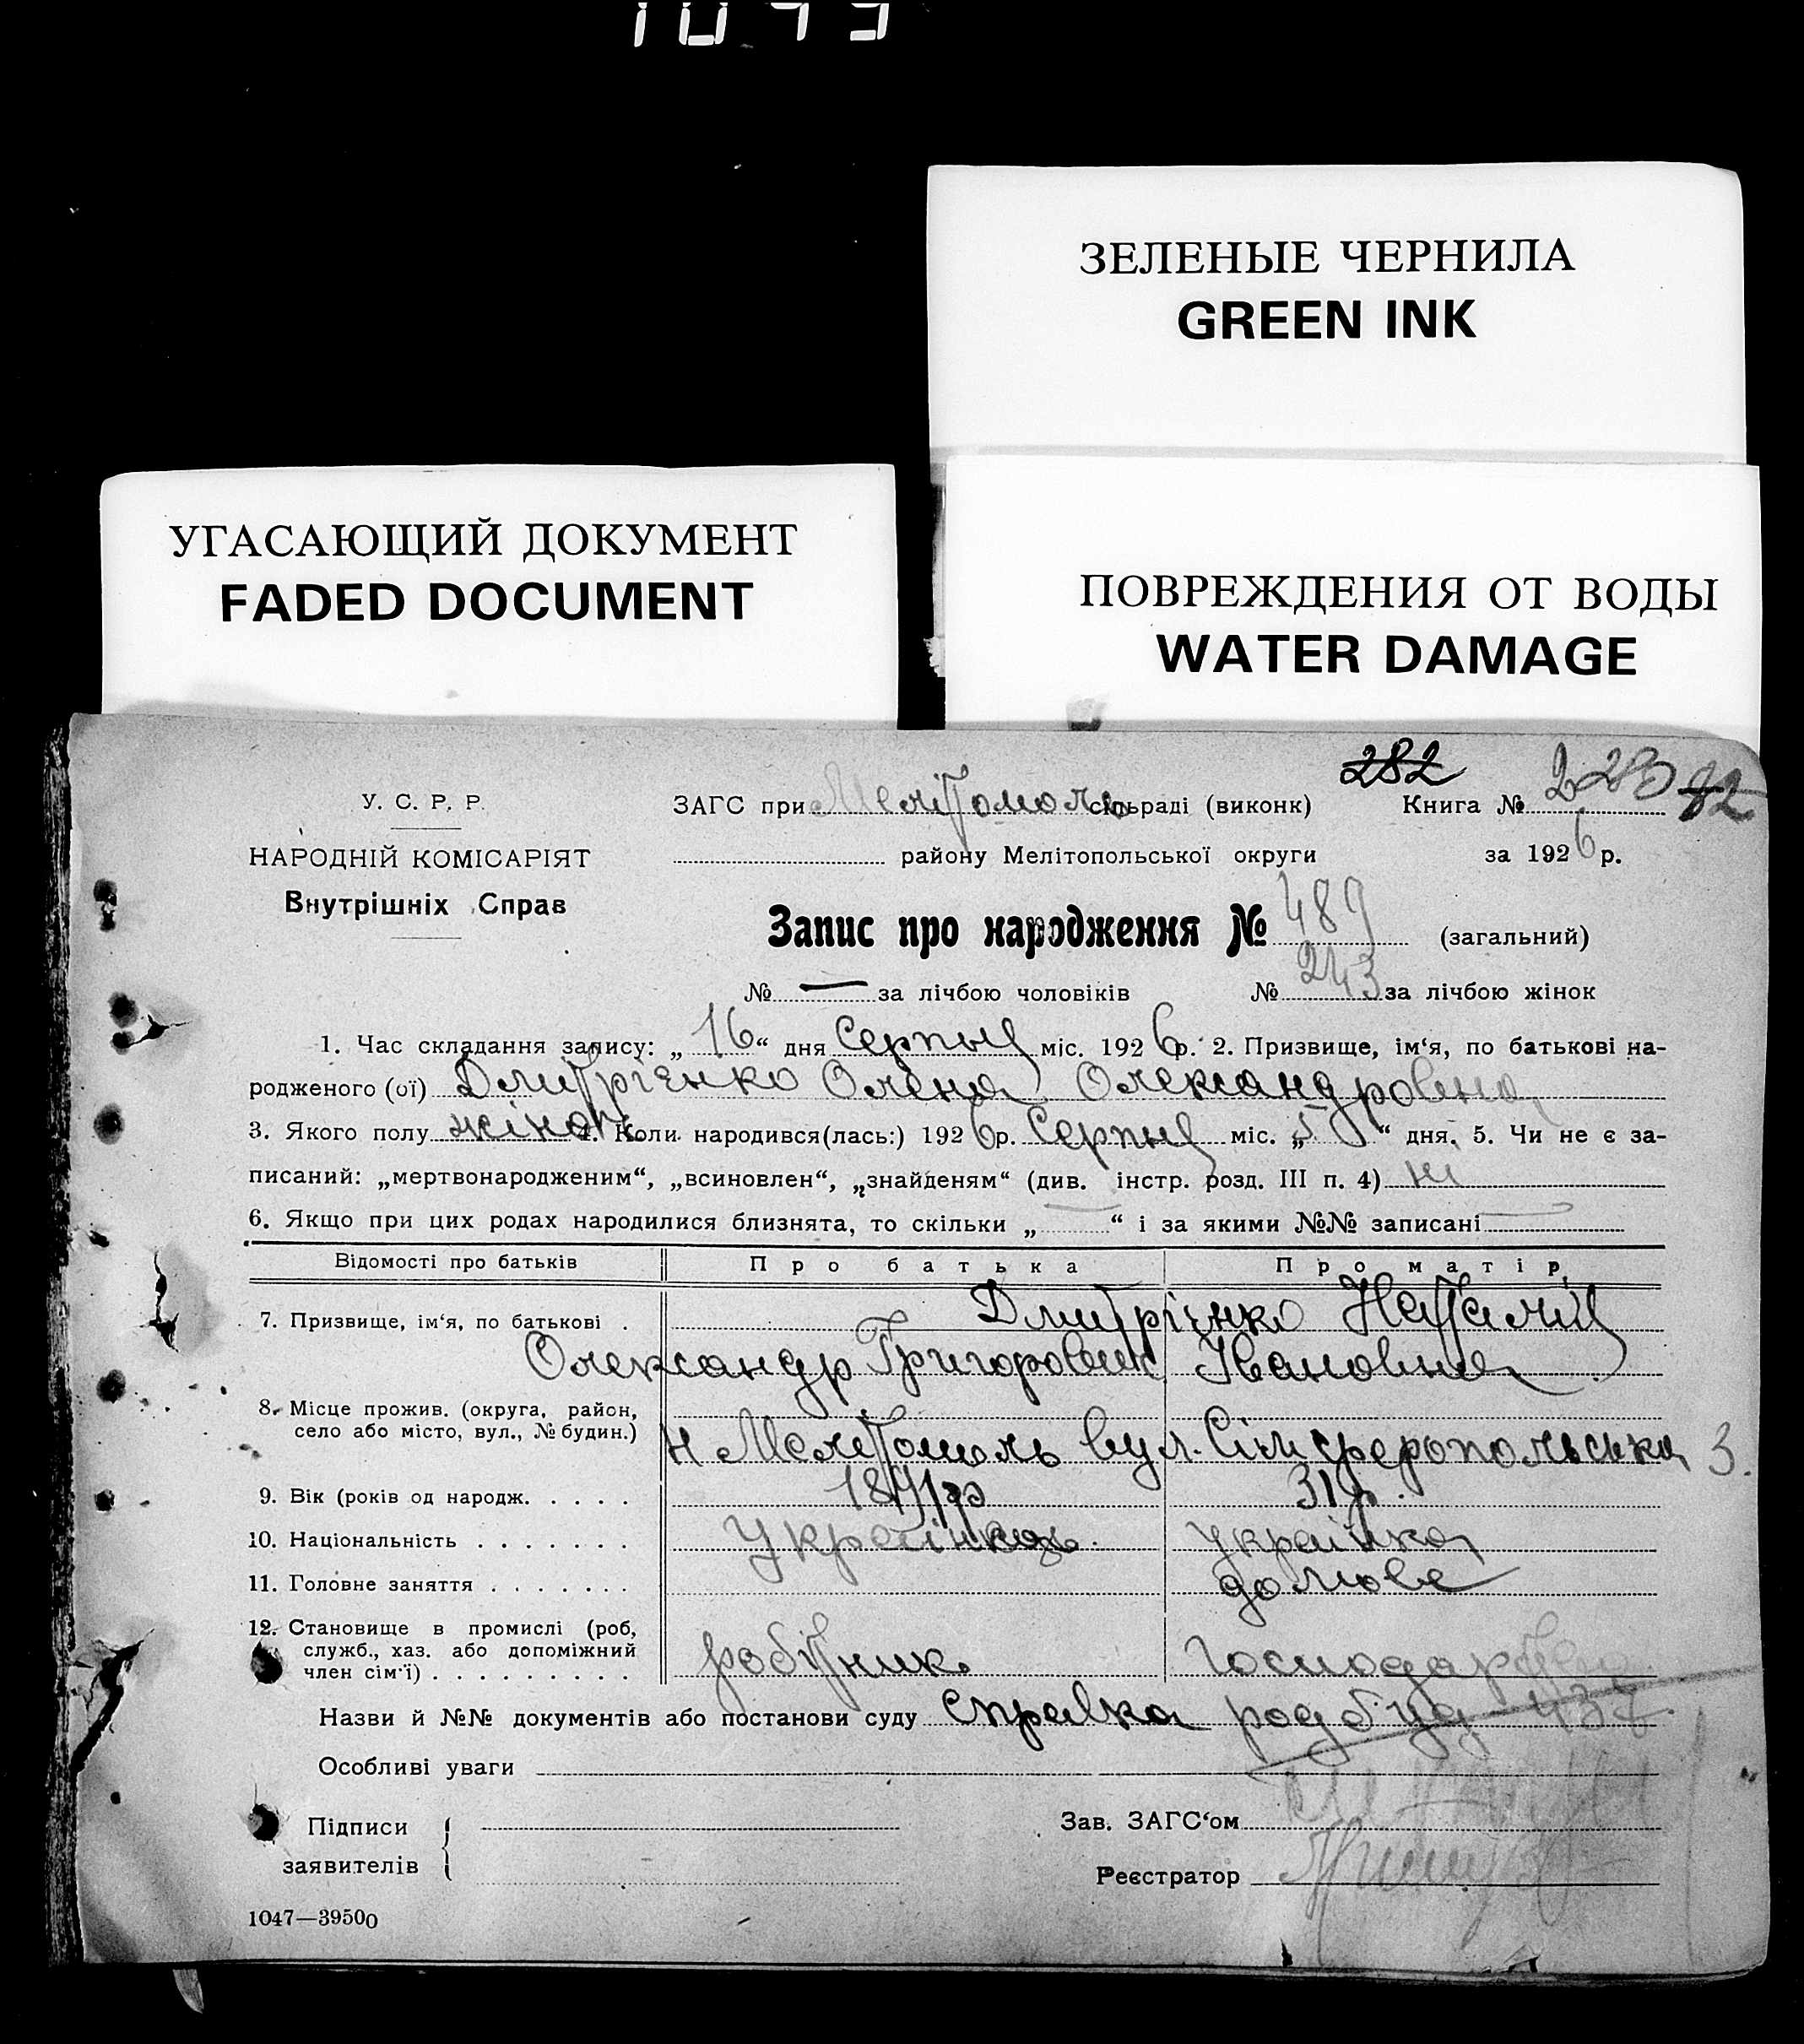 ЗЕЛЕНЫЕ ЧЕРНИЛА
GREEN INK
УГАСАЮЩИЙ ДОКУМЕНТ
FADED DOCUMENT
ПОВРЕЖДЕНИЯ ОТ ВОДЫ
WATER DAMAGE
282
У. С. Р. Р.
ЗАГС при Мелітополь сільраді (виконк) Книга № 2 82
НАРОДНІЙ КОМІСАРІЯТ
району Мелітопольської округи за 1926 р.
Внутрішніх Справ
Запис про народження № 489 (загальний)
№ — за лічбою чоловіків № 243 за лічбою жінок
1. Час складання запису: „16“ дня Серпня міс. 1926 р. 2. Призвище, ім‘я, по батькові на-
родженого (ої) Дмитрієнко Олена Олександровна
3. Якого полу жіноч. 4. Коли народився(лась:) 1926 р. Серпня міс. „5“ дня. 5. Чи не є за-
писаний: „мертвонародженим“, „всиновлен“, „знайденям“ (див. інстр. розд. III п. 4) ні
6. Якщо при цих родах народилися близнята, то скільки „—“ і за якими №№ записані —
Відомості про батьків Про батька Про матір
7. Призвище, ім‘я, по батькові . Дмитрієнко Наталія
Олександр Григорович Івановна
8. Місце прожив. (округа, район,
село або місто, вул., № будин.) м Мелітополь вул. Сімферопольська 3.
9. Вік (років од народж. . . . . 1891 р 31 р.
10. Національність . . . . . . . Українець. українка
11. Головне заняття . . . . . . . домове
12. Становище в промислі (роб,
служб., хаз. або допоміжний
член сім‘ї) . . . . . . . . . робітник господарство
Назви й №№ документів або постанови суду справка родбуд 437
Особливі уваги
Підписи
заявителів
Зав. ЗАГС‘ом
Реєстратор
1047—39500